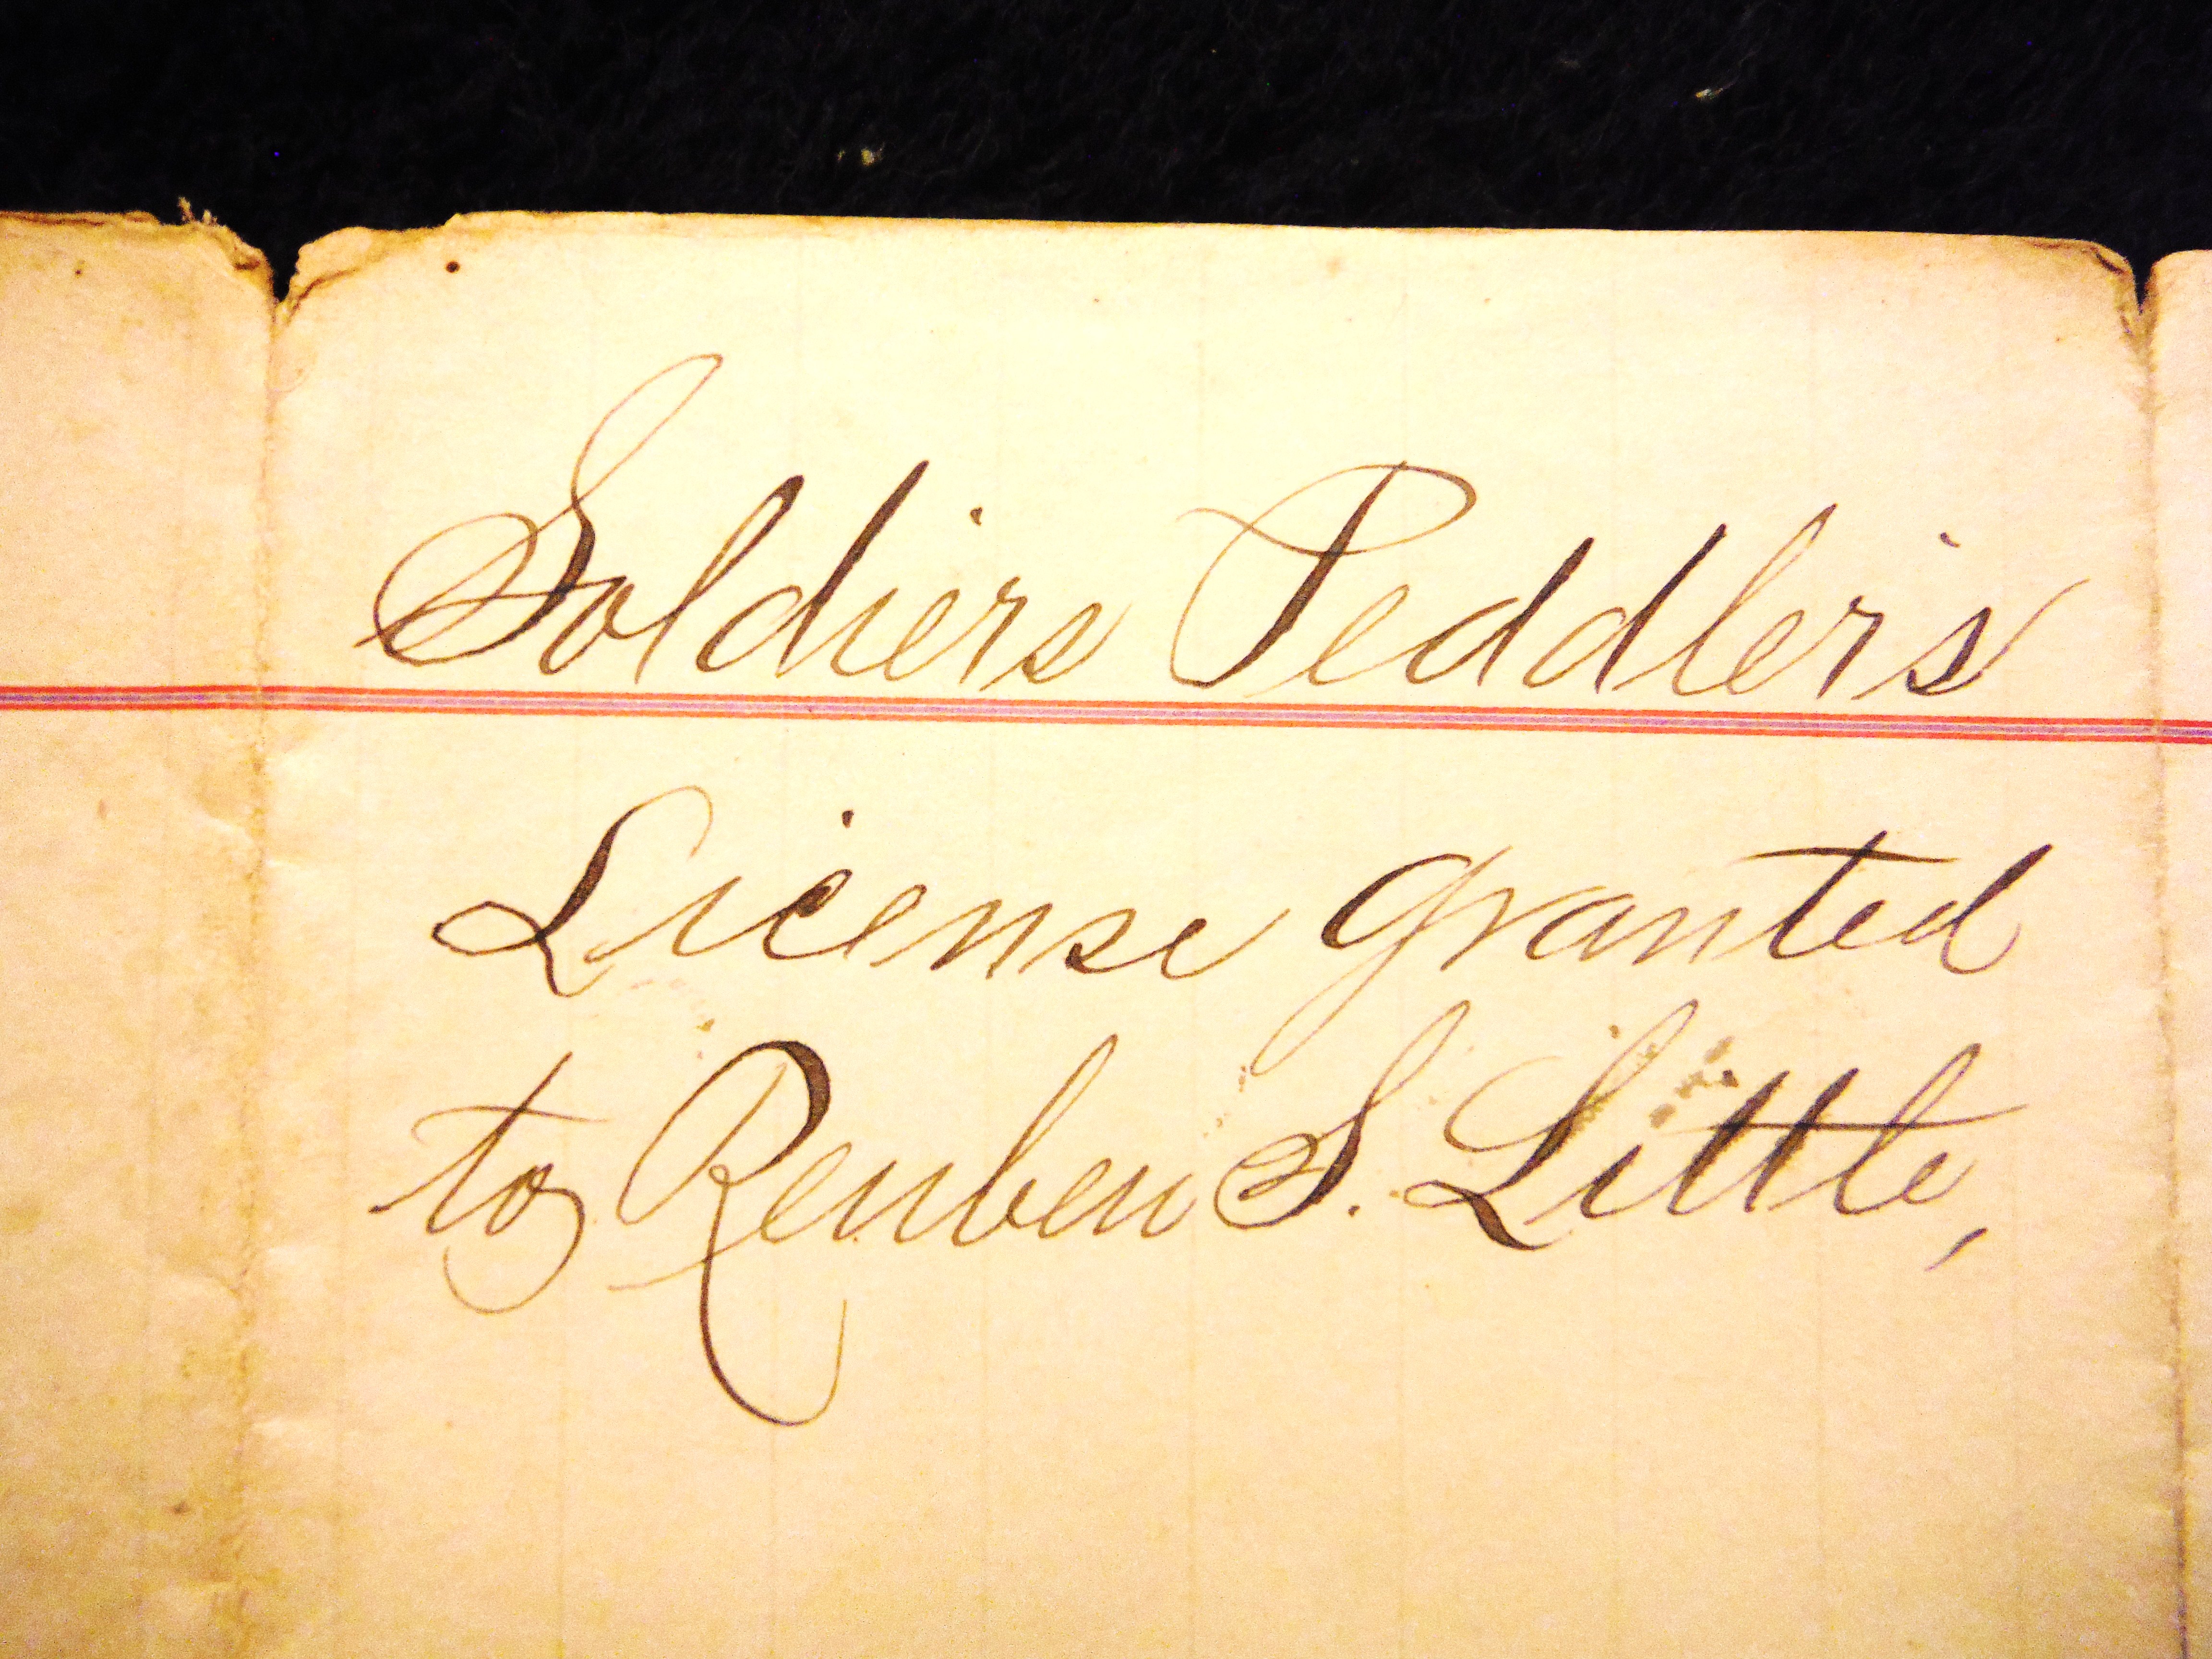 Soldiers Peddler's
License granted
to Reuben S. Little,